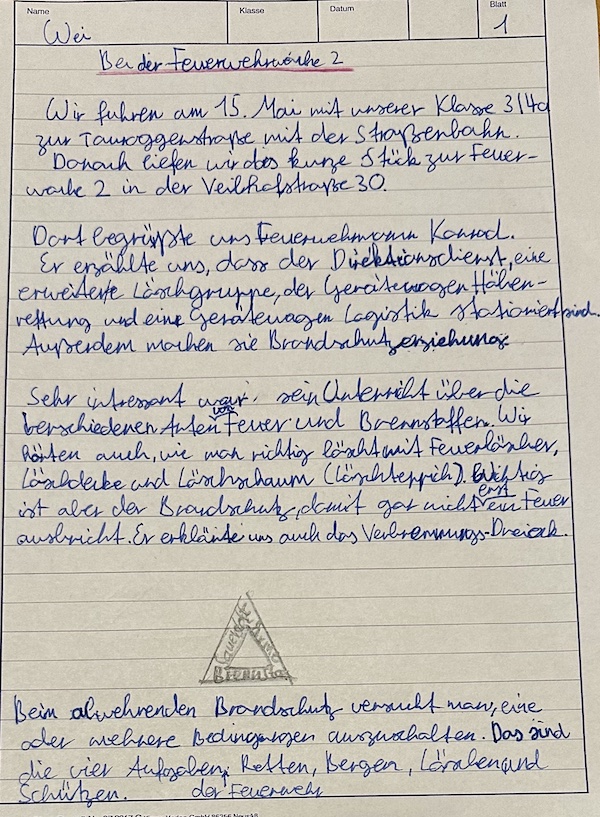 Name
Klasse
Datum
Blatt
Wei
1
Bei der Feuerwehrwache 2
Wir fuhren am 15. Mai mit unserer Klasse 3/4a
zur Tauroggenstraße mit der Straßenbahn.
Danach liefen wir das kurze Stück zur Feuer-
wache 2 in der Veilhofstraße 30.
Dort begrüßte uns Feuerwehmann Konrad.
Er erzählte uns, dass der Direktionsdienst, eine
erweiterte Löschgruppe, der Gerätewagen Höhen-
rettung und eine Gerätewagen Logistik stationiert sind.
Außerdem machen sie Brandschutzerziehung.
Sehr intressant war sein Unterricht über die
verschiedenen Arten von Feuer und Brennstoffen. Wir
hörten auch, wie man richtig löscht mit Feuerlöscher,
Löschdecke und Löschschaum (Löschteppich). Wichtig
ist aber der Brandschutz, damit gar nicht erst ein Feuer
ausbricht. Er erklärte uns auch das Verbrennungs-Dreieck.
Sauerstoff
Wärme
Brennstoff
Beim abwehrenden Brandschutz versucht man, eine
oder mehrere Bedingungen auszuschalten. Das sind
die vier Aufgaben der Feuerwehr: Retten, Bergen, Löschen und
Schützen.